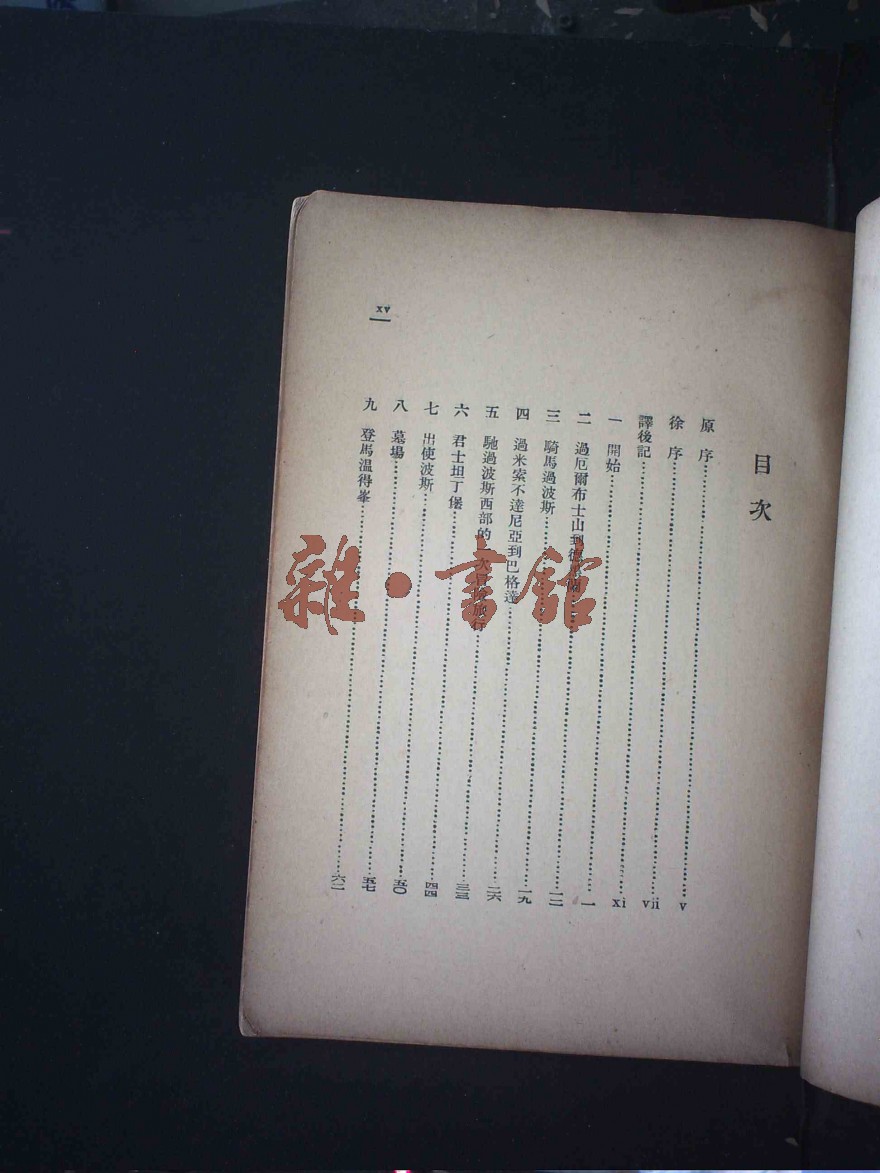 目次
原序……v
徐序……vii
譯後記……xi
一 開始……一
二 過厄爾布士山到德黑蘭……一二
三 騎馬過波斯……一九
四 過米索不達尼亞到巴格達……二六
五 馳過波斯西部的一次冒險旅行……三三
六 君士坦丁堡……四四
七 出使波斯……五〇
八 墓場……五七
九 登馬溫得峯……六二
xv
雜·書館